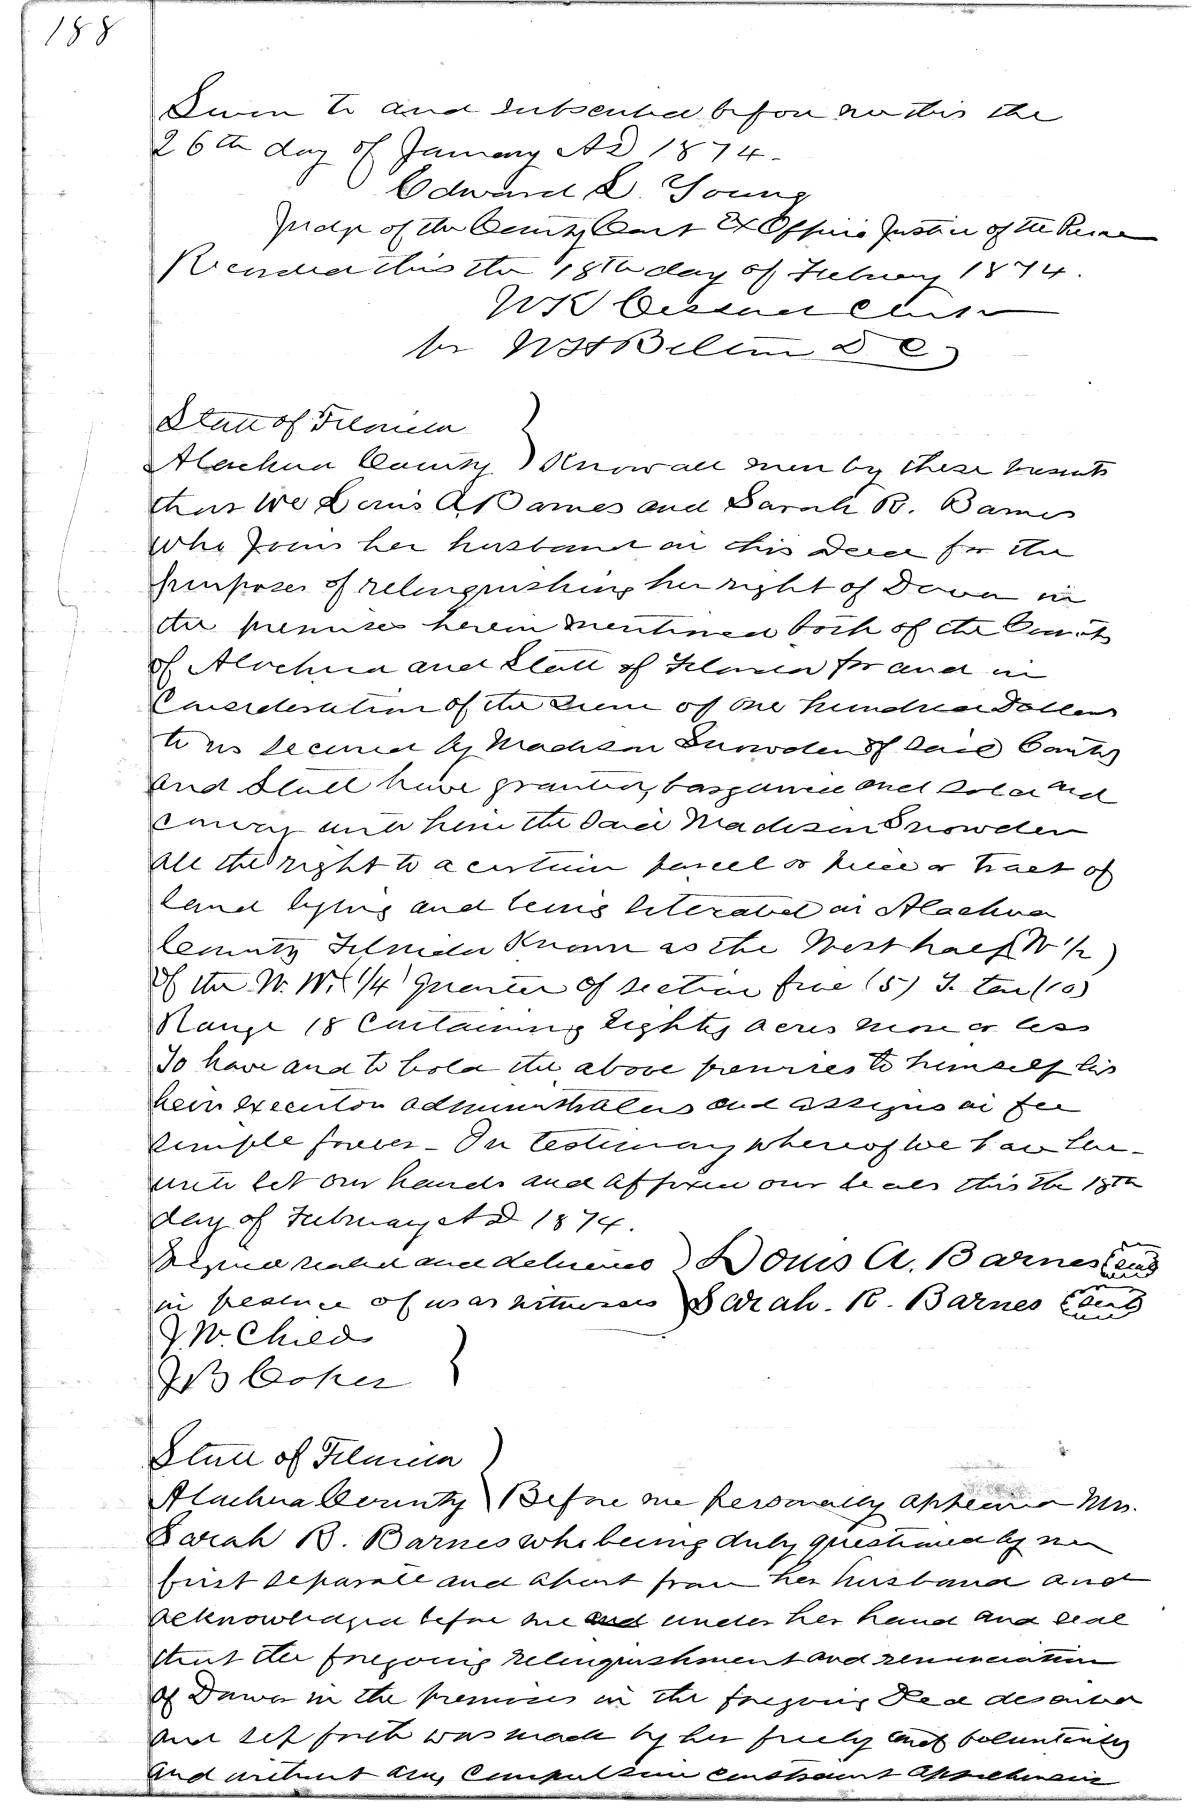 188
Sworn to and subscribed before me this the
26th day of January AD 1874.
Edward L. Young
Judge of the County Court Ex Officio Justice of the Peace
Recorded this the 18th day of February 1874.
WK Cessna Clerk
by WH Belton D C
State of Florida
Alachua County } Know all men by these presents
that We Louis A. Barnes and Sarah R. Barnes
who joins her husband in this Deed for the
purposes of relinquishing her right of Dower in
the premises herein mentioned both of the County
of Alachua and State of Florida for and in
Consideration of the sum of one hundred Dollars
to us secured by Madison Snowden of said County
and State have granted, bargained and sold and
convey unto him the said Madison Snowden
all the right to a certain parcel or piece or tract of
land lying and being situated in Alachua
County Florida Known as the West half (W 1/2)
of the N. W. (1/4) quarter of section five (5) T. ten (10)
Range 18 Containing Eighty acres more or less
To have and to hold the above premises to himself his
heirs executors administrators and assigns in fee
simple forever - In testimony whereof we have here-
unto set our hands and affixed our seals this the 18th
day of February AD 1874.
Signed sealed and delivered } Louis A. Barnes (seal)
in presence of us as witnesses } Sarah. R. Barnes (seal)
J. W. Childs
J B Coker }
State of Florida
Alachua County } Before me personally appeared Mrs.
Sarah R. Barnes who being duly questioned by me
first separate and apart from her husband and
acknowledged before me and under her hand and seal
that the foregoing relinquishment and renunciation
of Dower in the premises in the foregoing Deed described
and set forth was made by her freely and voluntarily
and without any compulsion constraint apprehension